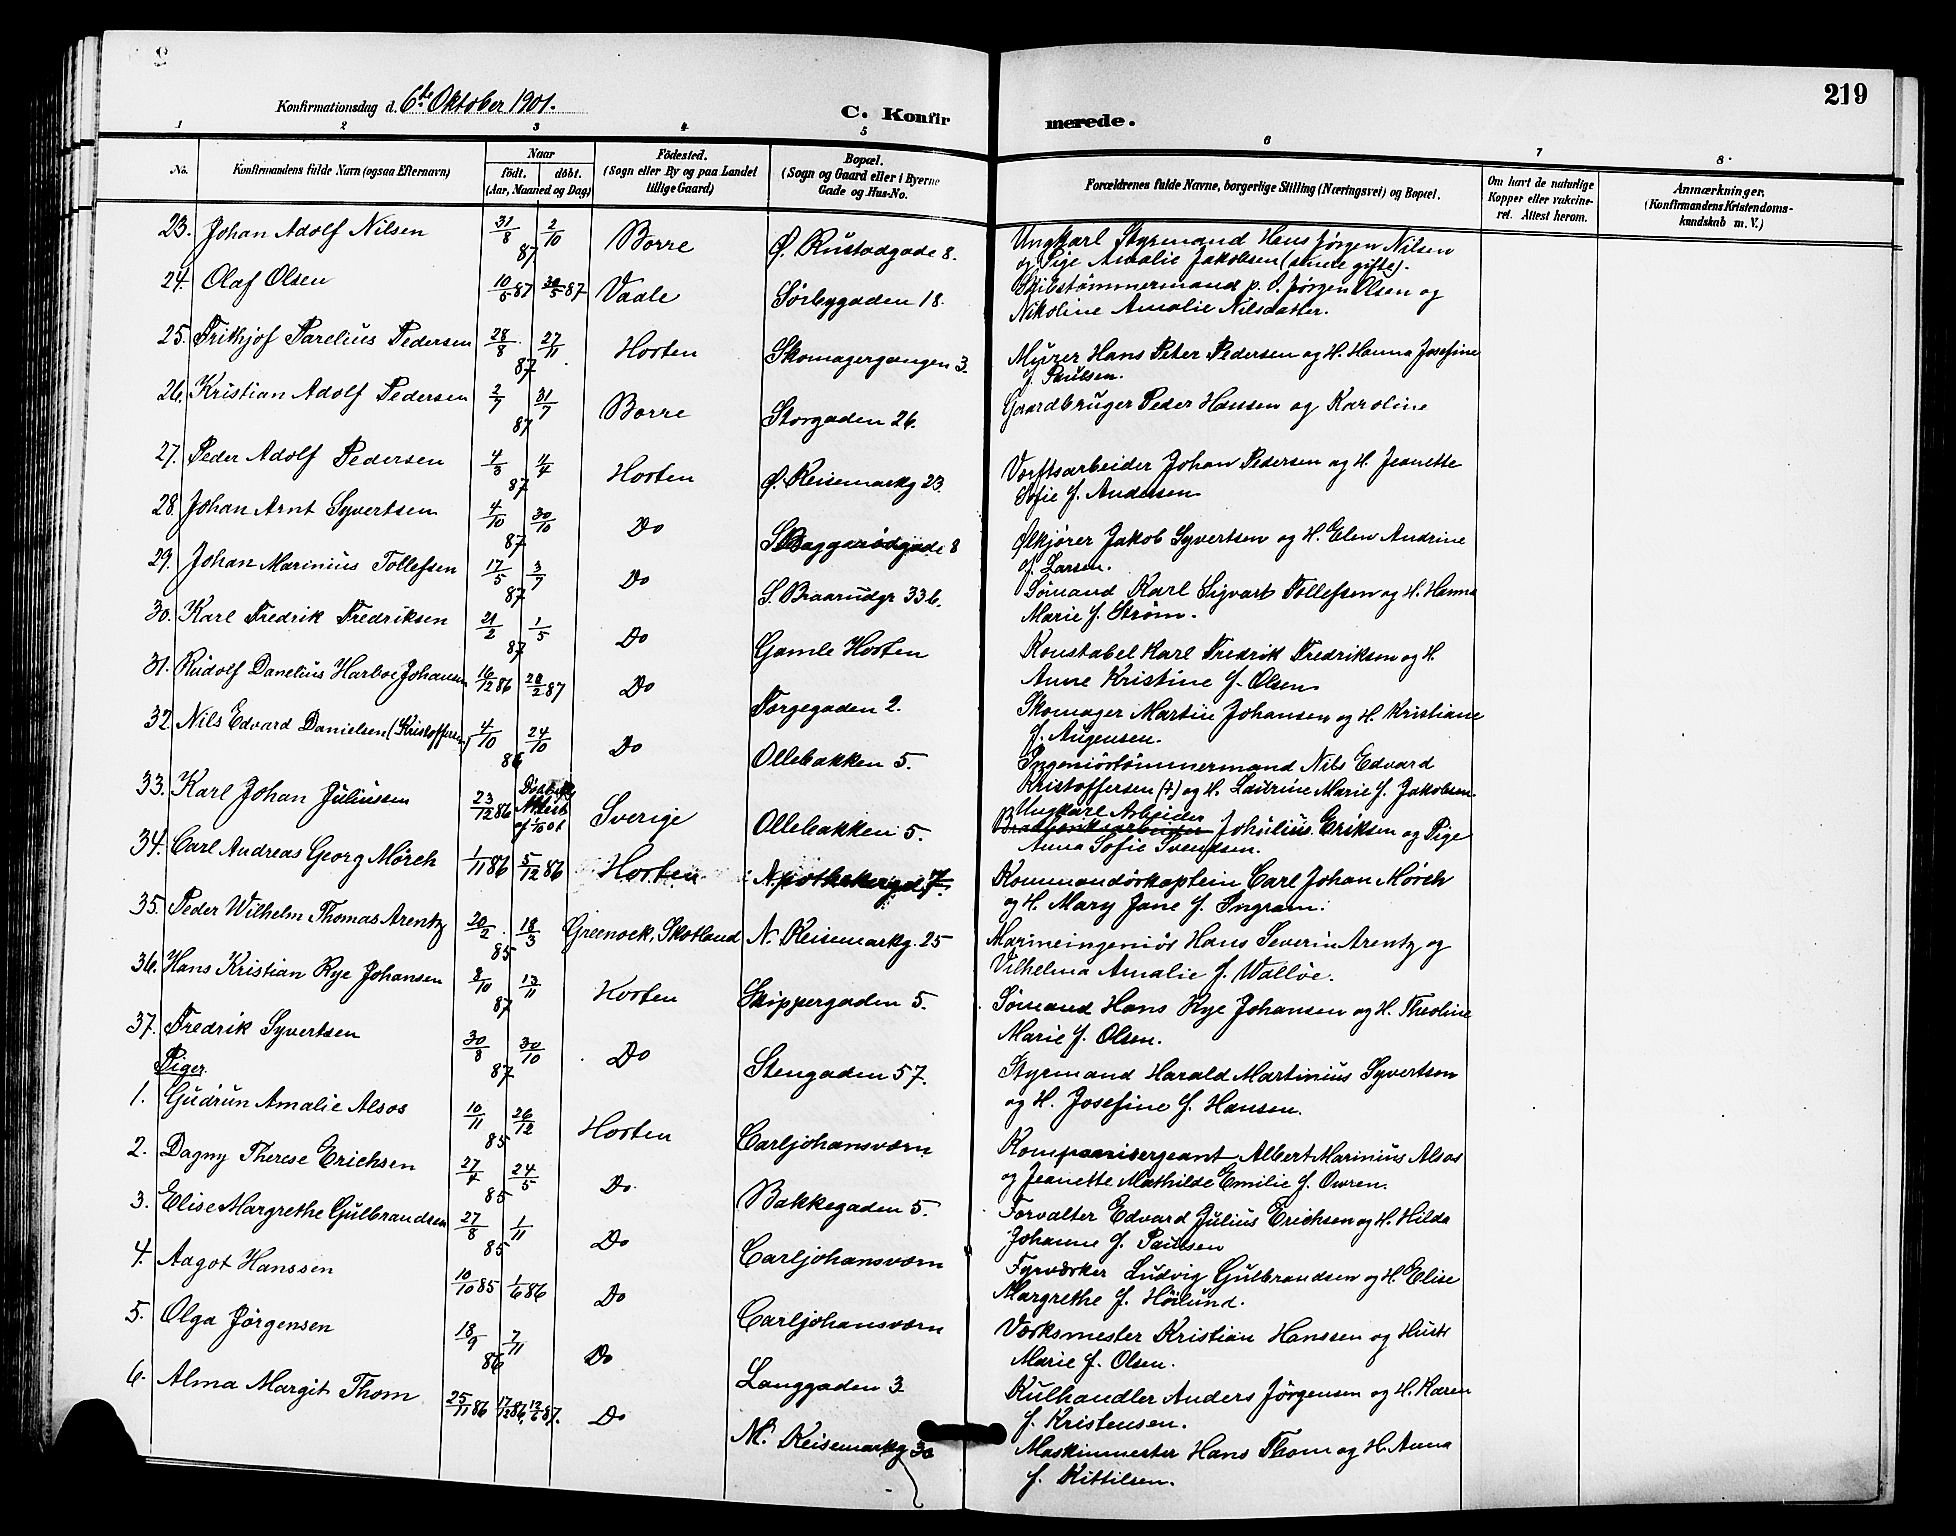 219
Konfirmationsdag d. 6te Oktober 1901.
C. Konfirmerede.
1 2 3 4 5 6 7 8
No. Konfirmandens fulde Navn (ogsaa Efternavn) Naar födt. döbt. (Aar, Maaned og Dag) Födested. (Sogn eller By og paa Landet tillige Gaard) Bopæl. (Sogn og Gaard eller i Byerne Gade og Hus-No. Forældrenes fulde Navne, borgerlige Stilling (Næringsvei) og Bopæl. Om havt de naturlige Kopper eller vakcineret. Attest herom. Anmærkninger. (Konfirmandens Kristendomskundskab m. V.)
23. Johan Adolf Nilsen 31/8 2/10 87 Borre Ø. Rustadgade 8. Ungkarl Styrmand Hans Jørgen Nilsen
og Pige Amalie Jakobsen (senere gifte).
24. Olaf Olsen 10/5 87 30/5 87 Vaale Sørbygaden 18. Skibstømmermand p. O. Jørgen Olsen og
Nikoline Amalie Nilsdatter.
25. Frithjof Parelius Pedersen 28/8 27/11 87 Horten Skomagergangen 3. Myrer Hans Peter Pedersen og H. Hanna Josefine
f. Paulsen.
26. Kristian Adolf Pedersen 2/7 31/7 87 Borre Storgaden 26. Gaardbruger Peder Hansen og Karoline
27. Peder Adolf Pedersen 4/3 11/4 87 Horten Ø. Keisemarkg 23. Verftsarbeider Johan Pedersen og H. Jeanette
Sofie f. Andersen
28. Johan Arnt Syvertsen 4/10 30/10 87 Do S. Baggerødgade 8 Ølkjører Jakob Syvertsen og H. Elen Andrine
f. Larsen.
29. Johan Marinius Tollefsen 17/5 3/7 87 Do S. Braarudgr 33 b. Sømand Karl Sigvart Tollefsen og H. Hanna
Marie f. Strøm.
30. Karl Fredrik Fredriksen 21/2 1/5 87 Do Gamle Horten Konstabel Karl Fredrik Fredriksen og H.
Anne Kristine f. Olsen
31. Rudolf Danelius Harboe Johansen 16/12 86 20/2 87 Do Torgegaden 2. Skomager Martin Johansen og H. Kristiane
f. Augensen.
32. Nils Edvard Danielsen (Kristoffersen) 4/10 24/10 86 Do Ollebakken 5. Ingeniørtømmermand Nils Edvard
Kristoffersen (+) og H. Laurine Marie f. Jakobsen
33. Karl Johan Juliussen 23/12 86 Attest af 1/10 01 Sverige Ollebakken 5. Ungkarl Arbeider
Julius Eriksen og Pige
Anna Sofie Svendsen.
34. Carl Andreas Georg Mørch 1/11 86 5/12 86 Horten Apothekergd. 7. Kommandørkaptein Carl Johan Mørch
og H. Mary Jane f. Ingram.
35. Peder Wilhelm Thomas Arentz 20/2 18/3 85 Greenock, Skotland N. Keisemarkg. 25 Marineingeniør Hans Severin Arentz og
Vilhelma Amalie f. Walløe.
36. Hans Kristian Rye Johansen 8/10 13/11 87 Horten Skippergaden 5. Sømand Hans Rye Johansen og H. Theoline
Marie f. Olsen.
37. Fredrik Syvertsen 30/8 30/10 87 Do Stengaden 57. Styrmand Harald Martinius Syvertsen
og H. Josefine f. Hansen.
Piger.
1. Gudrun Amalie Alsos 10/11 26/12 85 Horten Carljohansværn Kompanisergeant Albert Marinius Alsos
og Jeanette Mathilde Emilie f. Owren.
2. Dagny Therese Erichsen 27/4 24/5 85 Do Bakkegaden 5. Forvalter Edvard Julius Erichsen og H. Hilda
Johanne f. Paulsen
3. Elise Margrethe Gulbrandsen 27/8 1/11 85 Do Carljohansværn Fyrværker Ludvig Gulbrandsen og H. Elise
Margrethe f. Høilund.
4. Aagot Hanssen 10/10 85 1/6 86 Do Carljohansværn Værksmester Kristian Hanssen og Hustr
Marie f. Olsen.
5. Olga Jørgensen 18/9 7/11 86 Do Langgaden 3 Kulhandler Anders Jørgensen og H. Karen
f. Kristensen.
6. Alma Margit Thom 25/11 86 17/12 86 12/6 87. Do N. Keisemarkg 30 Maskinmester Hans Thom og H. Anna
f. Kittilsen.